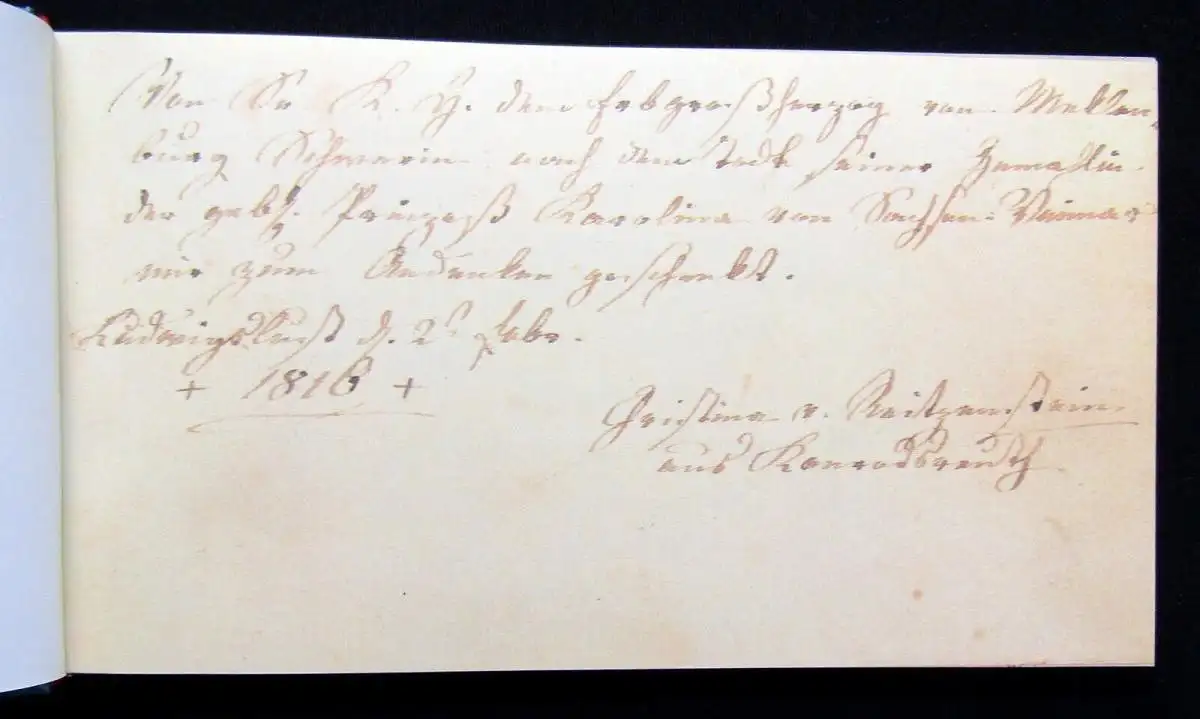 Von Sr K. H. dem Erbgroßherzog von Meklen-
burg Schwerin nach dem Tode seiner Gemahlin
der gebh. Prinzeß Karolina von Sachsen-Weimar
mir zum Andenken geschenkt.
Ludwigslust d. 2t Febr.
+ 1816 +
Christina v. Reitzenstein
aus Konradsreuth